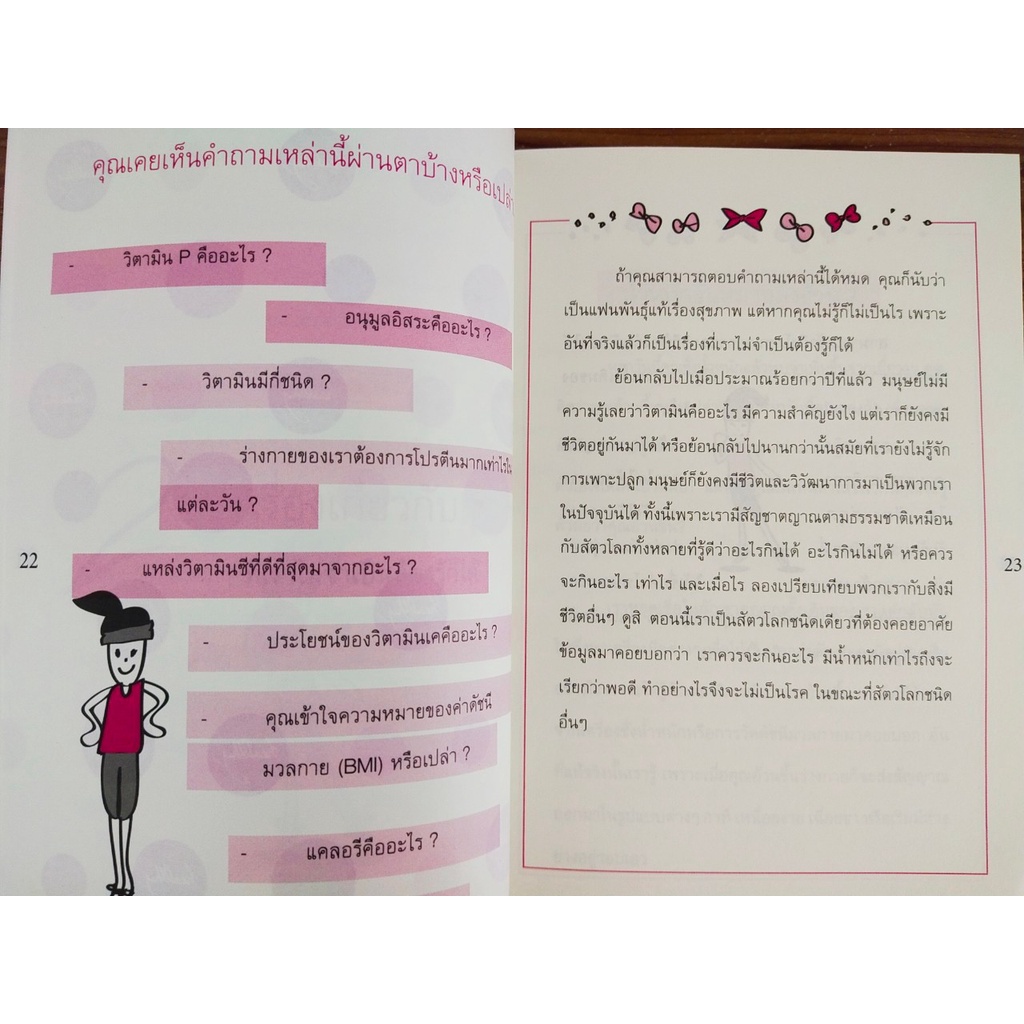 คุณเคยเห็นคำถามเหล่านี้ผ่านตาบ้างหรือเปล่า
- วิตามิน P คืออะไร ?
- อนุมูลอิสระคืออะไร ?
- วิตามินมีกี่ชนิด ?
- ร่างกายของเราต้องการโปรตีนมากเท่าไรใน
แต่ละวัน ?
22
- แหล่งวิตามินซีที่ดีที่สุดมาจากอะไร ?
- ประโยชน์ของวิตามินเคคืออะไร ?
- คุณเข้าใจความหมายของค่าดัชนี
มวลกาย (BMI) หรือเปล่า ?
- แคลอรีคืออะไร ?
ถ้าคุณสามารถตอบคำถามเหล่านี้ได้หมด คุณก็นับว่า
เป็นแฟนพันธุ์แท้เรื่องสุขภาพ แต่หากคุณไม่รู้ก็ไม่เป็นไร เพราะ
อันที่จริงแล้วก็เป็นเรื่องที่เราไม่จำเป็นต้องรู้ก็ได้
ย้อนกลับไปเมื่อประมาณร้อยกว่าปีที่แล้ว มนุษย์ไม่มี
ความรู้เลยว่าวิตามินคืออะไร มีความสำคัญยังไง แต่เราก็ยังคงมี
ชีวิตอยู่กันมาได้ หรือย้อนกลับไปนานกว่านั้นสมัยที่เรายังไม่รู้จัก
การเพาะปลูก มนุษย์ก็ยังคงมีชีวิตและวิวัฒนาการมาเป็นพวกเรา
ในปัจจุบันได้ ทั้งนี้เพราะเรามีสัญชาตญาณตามธรรมชาติเหมือน
กับสัตว์โลกทั้งหลายที่รู้ดีว่าอะไรกินได้ อะไรกินไม่ได้ หรือควร
จะกินอะไร เท่าไร และเมื่อไร ลองเปรียบเทียบพวกเรากับสิ่งมี
ชีวิตอื่นๆ ดูสิ ตอนนี้เราเป็นสัตว์โลกชนิดเดียวที่ต้องคอยอาศัย
ข้อมูลมาคอยบอกว่า เราควรจะกินอะไร มีน้ำหนักเท่าไรถึงจะ
เรียกว่าพอดี ทำอย่างไรจึงจะไม่เป็นโรค ในขณะที่สัตว์โลกชนิด
อื่นๆ
23